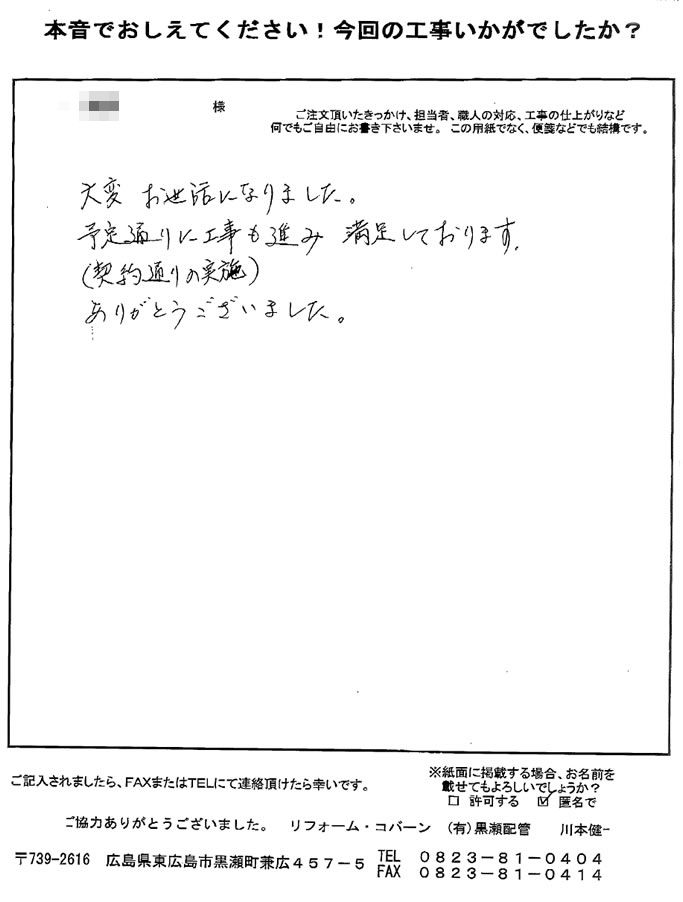 本音でおしえてください！今回の工事いかがでしたか？
様
ご注文頂いたきっかけ、担当者、職人の対応、工事の仕上がりなど
何でもご自由にお書き下さいませ。この用紙でなく、便箋などでも結構です。
大変 お世話になりました。
予定通りに工事も進み 満足しております。
(契約通りの実施)
ありがとうございました。
ご記入されましたら、FAXまたはTELにて連絡頂けたら幸いです。
※紙面に掲載する場合、お名前を
載せてもよろしいでしょうか？
□ 許可する ☑ 匿名で
ご協力ありがとうございました。 リフォーム・コバーン (有)黒瀬配管 川本健一
〒739-2616 広島県東広島市黒瀬町兼広４５７－５
TEL ０８２３－８１－０４０４
FAX ０８２３－８１－０４１４